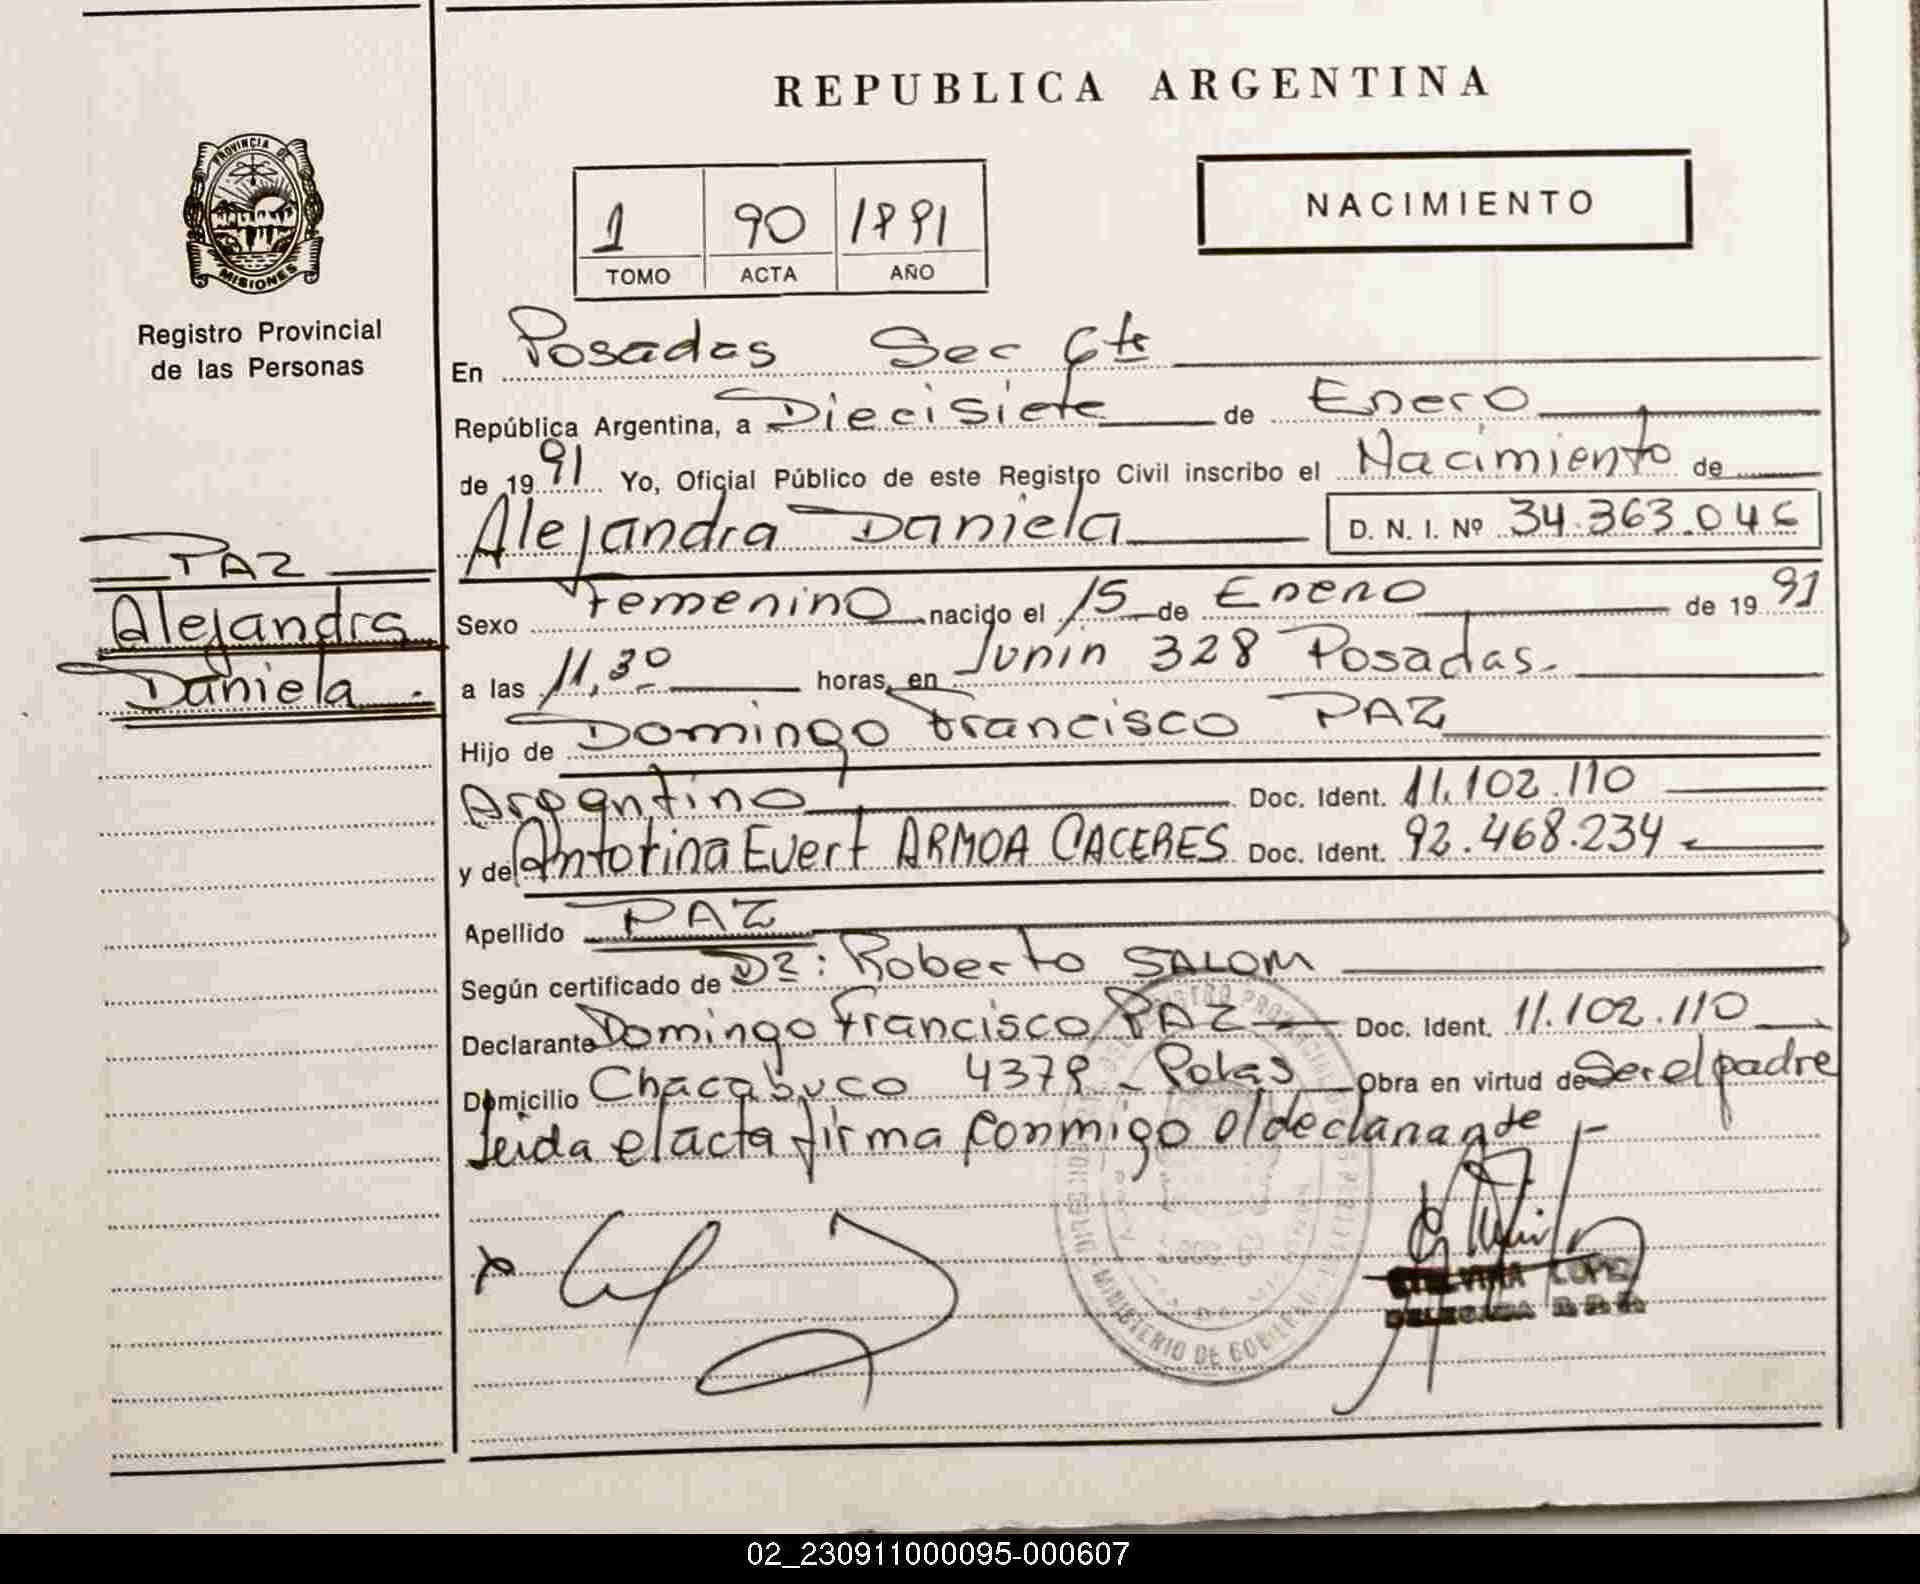 REPUBLICA ARGENTINA
PROVINCIA DE
MISIONES
Registro Provincial
de las Personas
1 90 1991
TOMO ACTA AÑO
NACIMIENTO
En Posadas Sec 6ta
República Argentina, a Diecisiete de Enero
de 1991 Yo, Oficial Público de este Registro Civil inscribo el Nacimiento de
Alejandra Daniela D. N. I. Nº 34.363.046
PAZ
Alejandra
Daniela.
Sexo Femenino nacido el 15 de Enero de 1991
a las 11,30 horas, en Junin 328 Posadas.
Hijo de Domingo Francisco PAZ
Argentino Doc. Ident. 11.102.110
y de Evert ARMOA CACERES Doc. Ident. 92.468.234
Apellido PAZ
Según certificado de Dr: Roberto SALOM
Declarante Domingo Francisco PAZ Doc. Ident. 11.102.110
Domicilio Chacabuco 4379 - Obra en virtud de Ser el padre
Leida el acta firma conmigo el
LOPEZ
MINISTERIO DE GOBIERNO
02_230911000095-000607